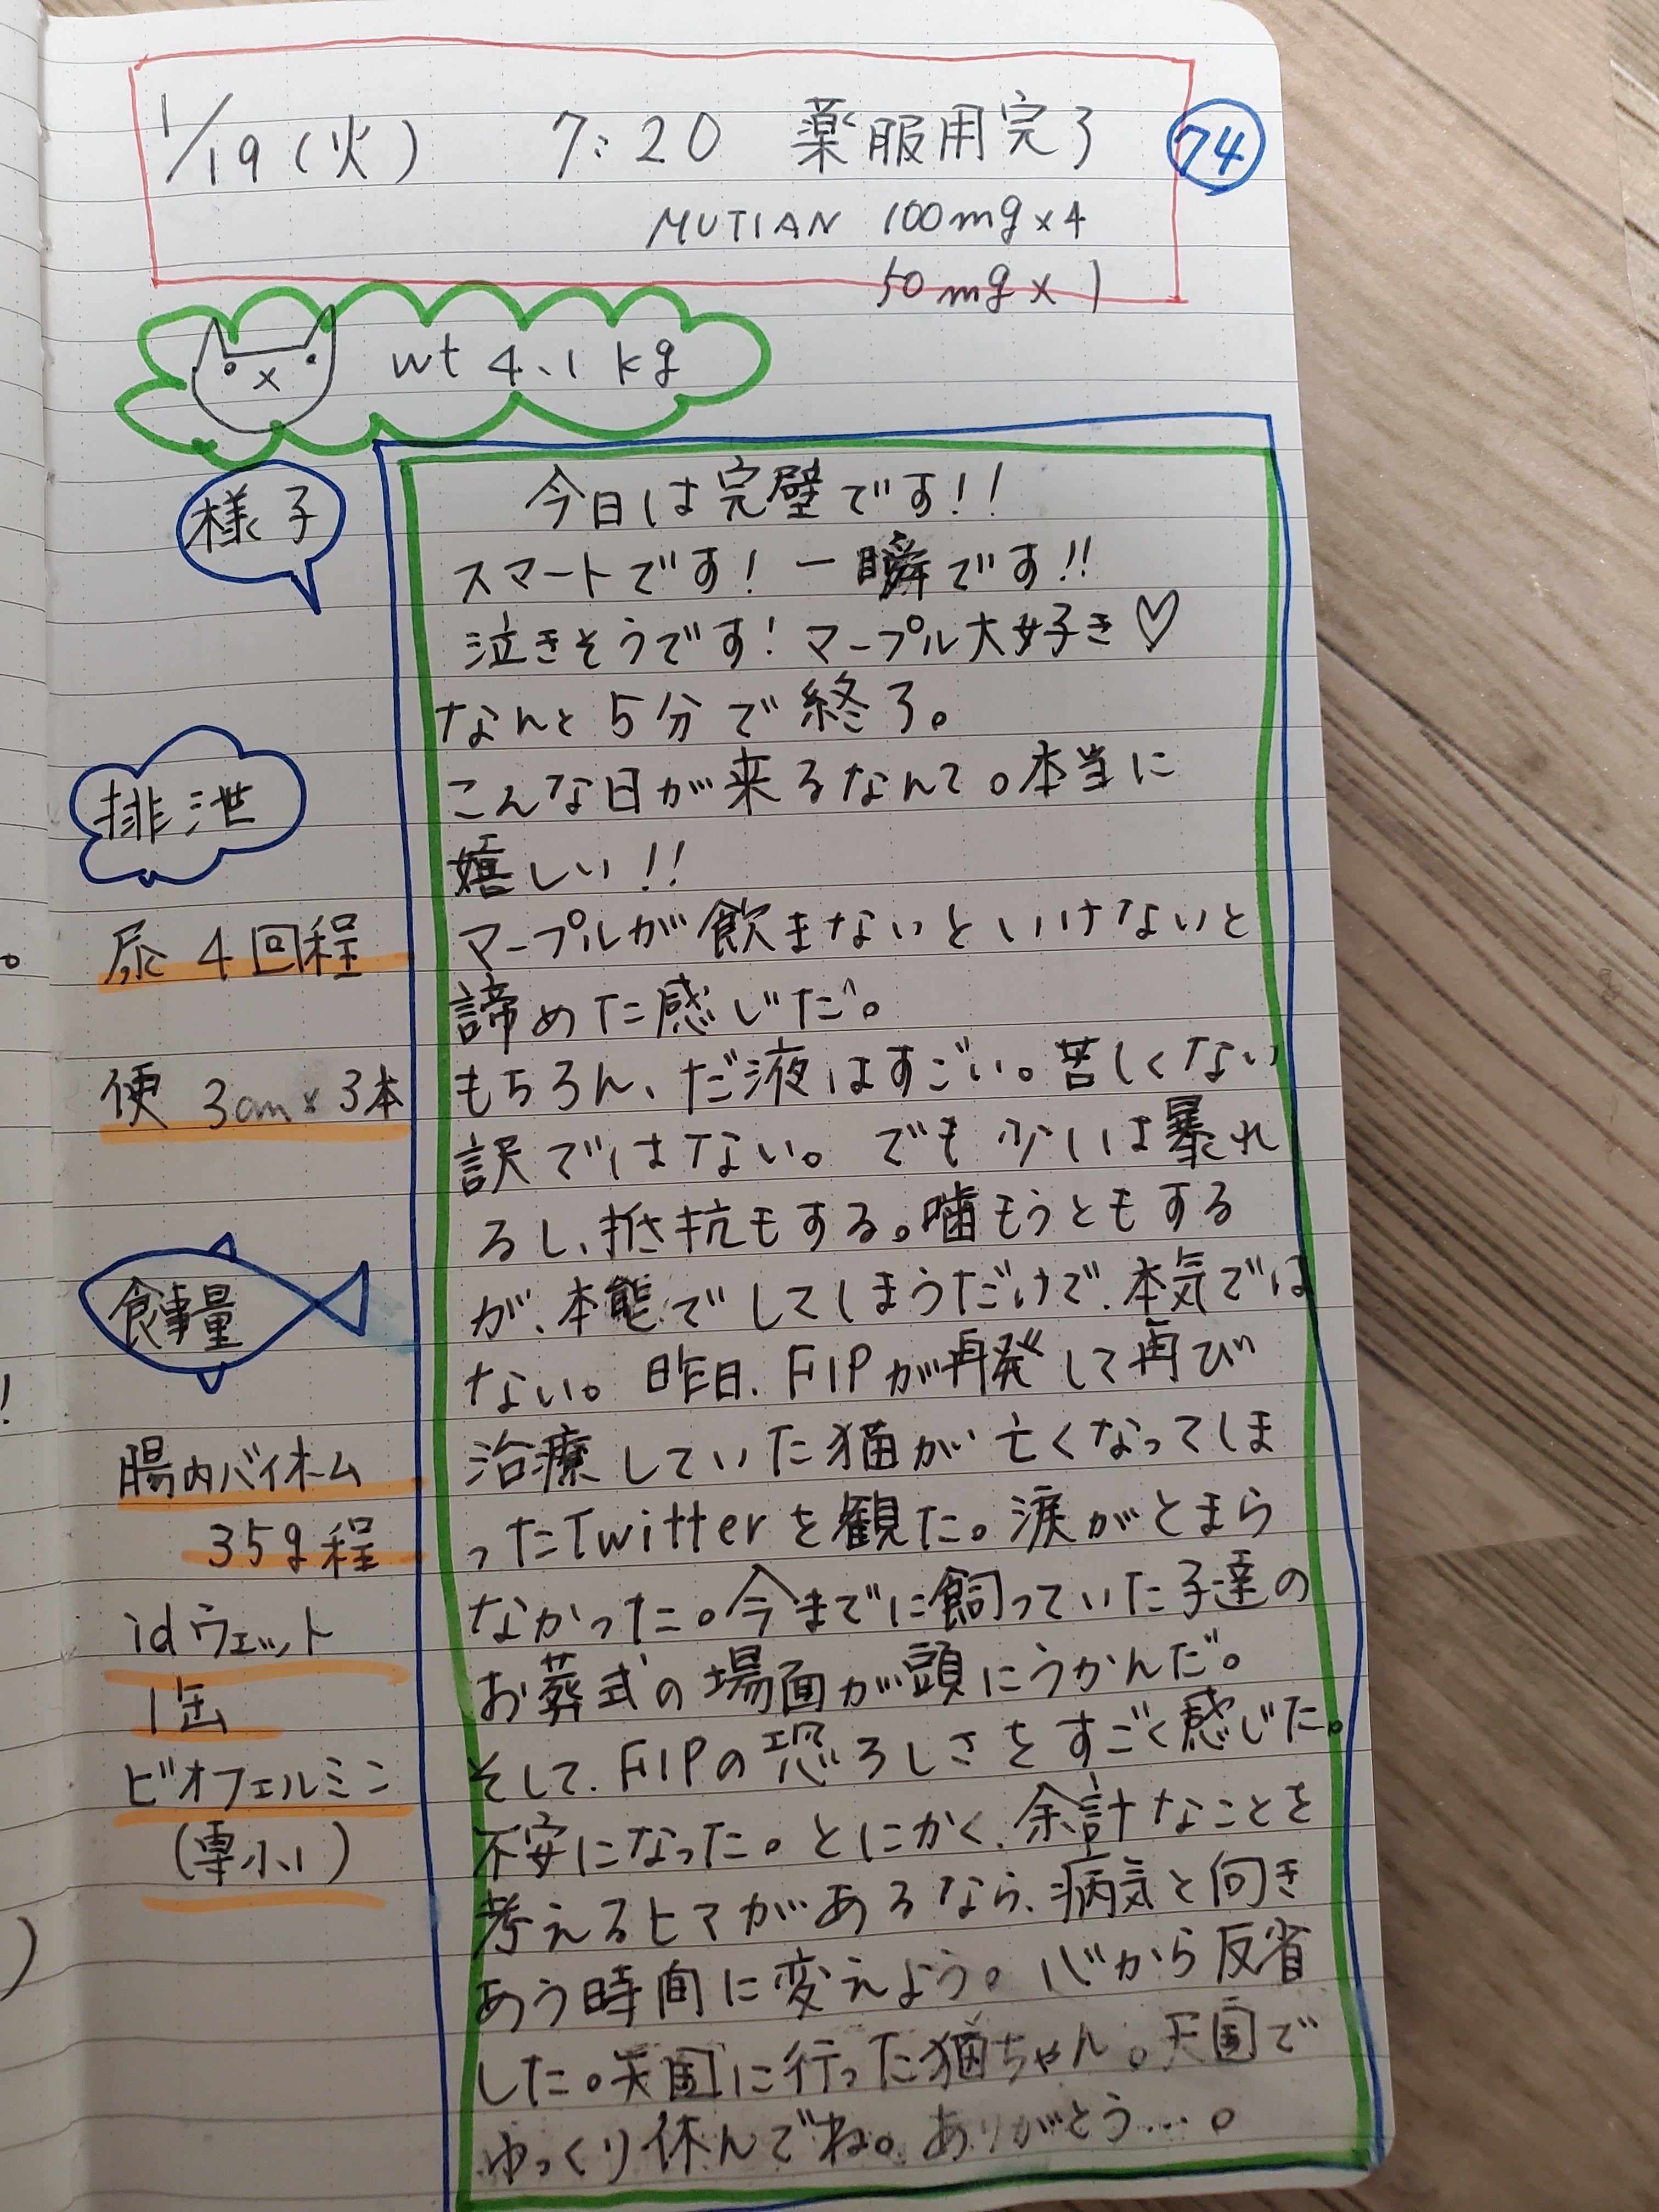 1/19(火) 7:20 薬服用完了 74
MUTIAN 100mg×4
50mg×1
wt 4.1kg
様子
今日は完璧です!!
スマートです!一瞬です!!
泣きそうです!マープル大好き♡
なんと5分で終了。
こんな日が来るなんて。本当に
嬉しい!!
マープルが飲まないといけないと
諦めた感じだ。
もちろん、だ液はすごい。苦しくない
訳ではない。でも少しは暴れ
るし、抵抗もする。噛もうともする
が、本能でしてしまうだけで、本気では
ない。昨日、FIPが再発して再び
治療していた猫が亡くなってしま
ったTwitterを観た。涙がとまら
なかった。今までに飼っていた子達の
お葬式の場面が頭にうかんだ。
そして、FIPの恐ろしさをすごく感じた。
不安になった。とにかく、余計なことを
考えるヒマがあるなら、病気と向き
あう時間に変えよう。心から反省
した。天国に行った猫ちゃん。天国で
ゆっくり休んでね。ありがとう…。
排泄
尿 4回程
便 3cm×3本
食事量
腸内バイオーム
35g程
idウェット
1缶
ビオフェルミン
(専小1)